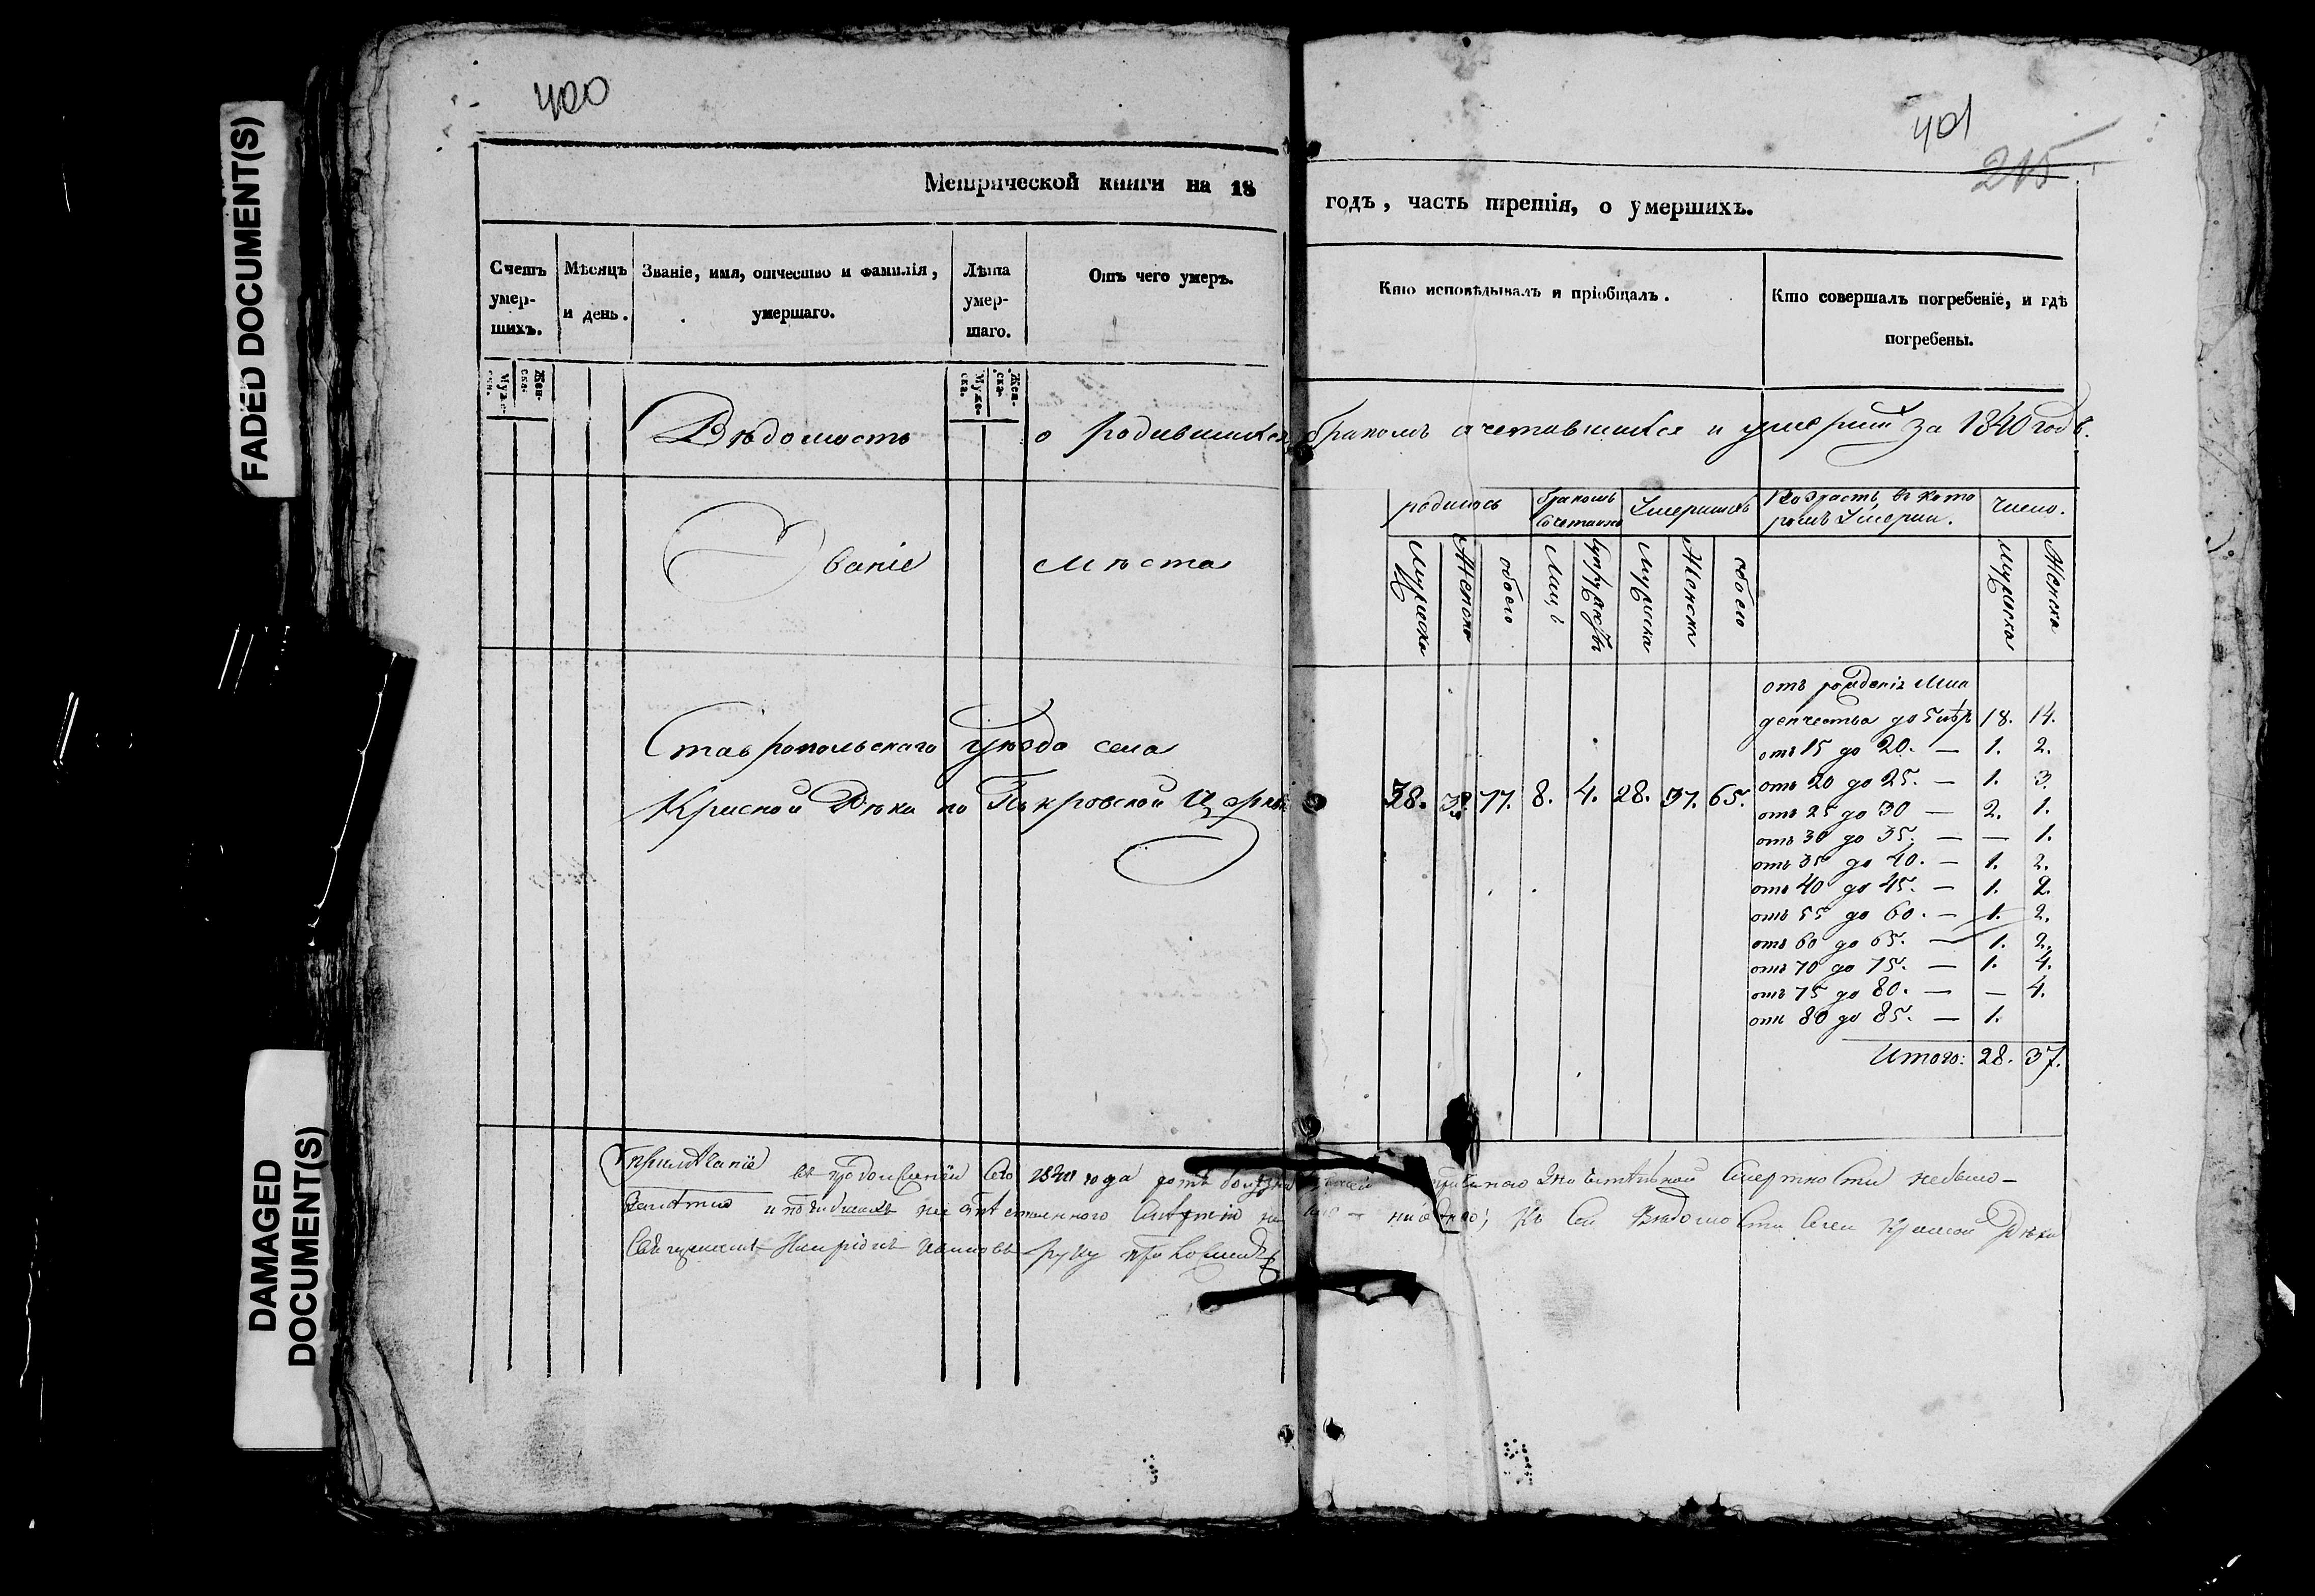 FADED DOCUMENT(S)
DAMAGED
DOCUMENT(S)
400
401
215
Метрической книги на 18
годъ, часть третія, о умершихъ.
Счетъ умер-шихъ.
Мѣсяцъ и день.
Званіе, имя, отчество и фамилія, умершаго.
Лѣта умер-шаго.
Отъ чего умеръ.
Кто исповѣдывалъ и пріобщалъ.
Кто совершалъ погребеніе, и гдѣ погребены.
Муже-ска.
Жен-ска.
Муже-ска.
Жен-ска.
Вѣдомость о родившихся, бракомъ сочетавшихся и умерши за 1840 годъ.
Званіе мѣста
родилось
бракомъ
Умершихъ
Возрастъ, въ кото
ромъ Умерли.
число.
Мужеска
Женска
обоего
Лицъ
Супружествъ
Мужеска
Женска
обоего
Мужеска
Женска
Ставропольскаго Уѣзда села
Красной Рѣки по Покровской Церкви
38. 39. 77. 8. 4. 28. 37. 65.
отъ рожденія Мла
денчества до 5 лѣтъ 18. 14.
отъ 15 до 20. — 1. 2.
отъ 20 до 25. — 1. 3.
отъ 25 до 30 — 2. 1.
отъ 30 до 35. — — 1.
отъ 35 до 40. — 1. 2.
отъ 40 до 45. — 1. 2.
отъ 55 до 60. — 1. 2.
отъ 60 до 65. — 1. 2.
отъ 70 до 75. — 1. 4.
отъ 75 до 80. — — 4.
отъ 80 до 85. — 1.
Итого: 28. 37.
Примѣчаніе въ продолженіи сего 1840 года смертности небыло —
и къ сей Вѣдомости села Красной Рѣки
Священникъ Ивановъ руку приложилъ